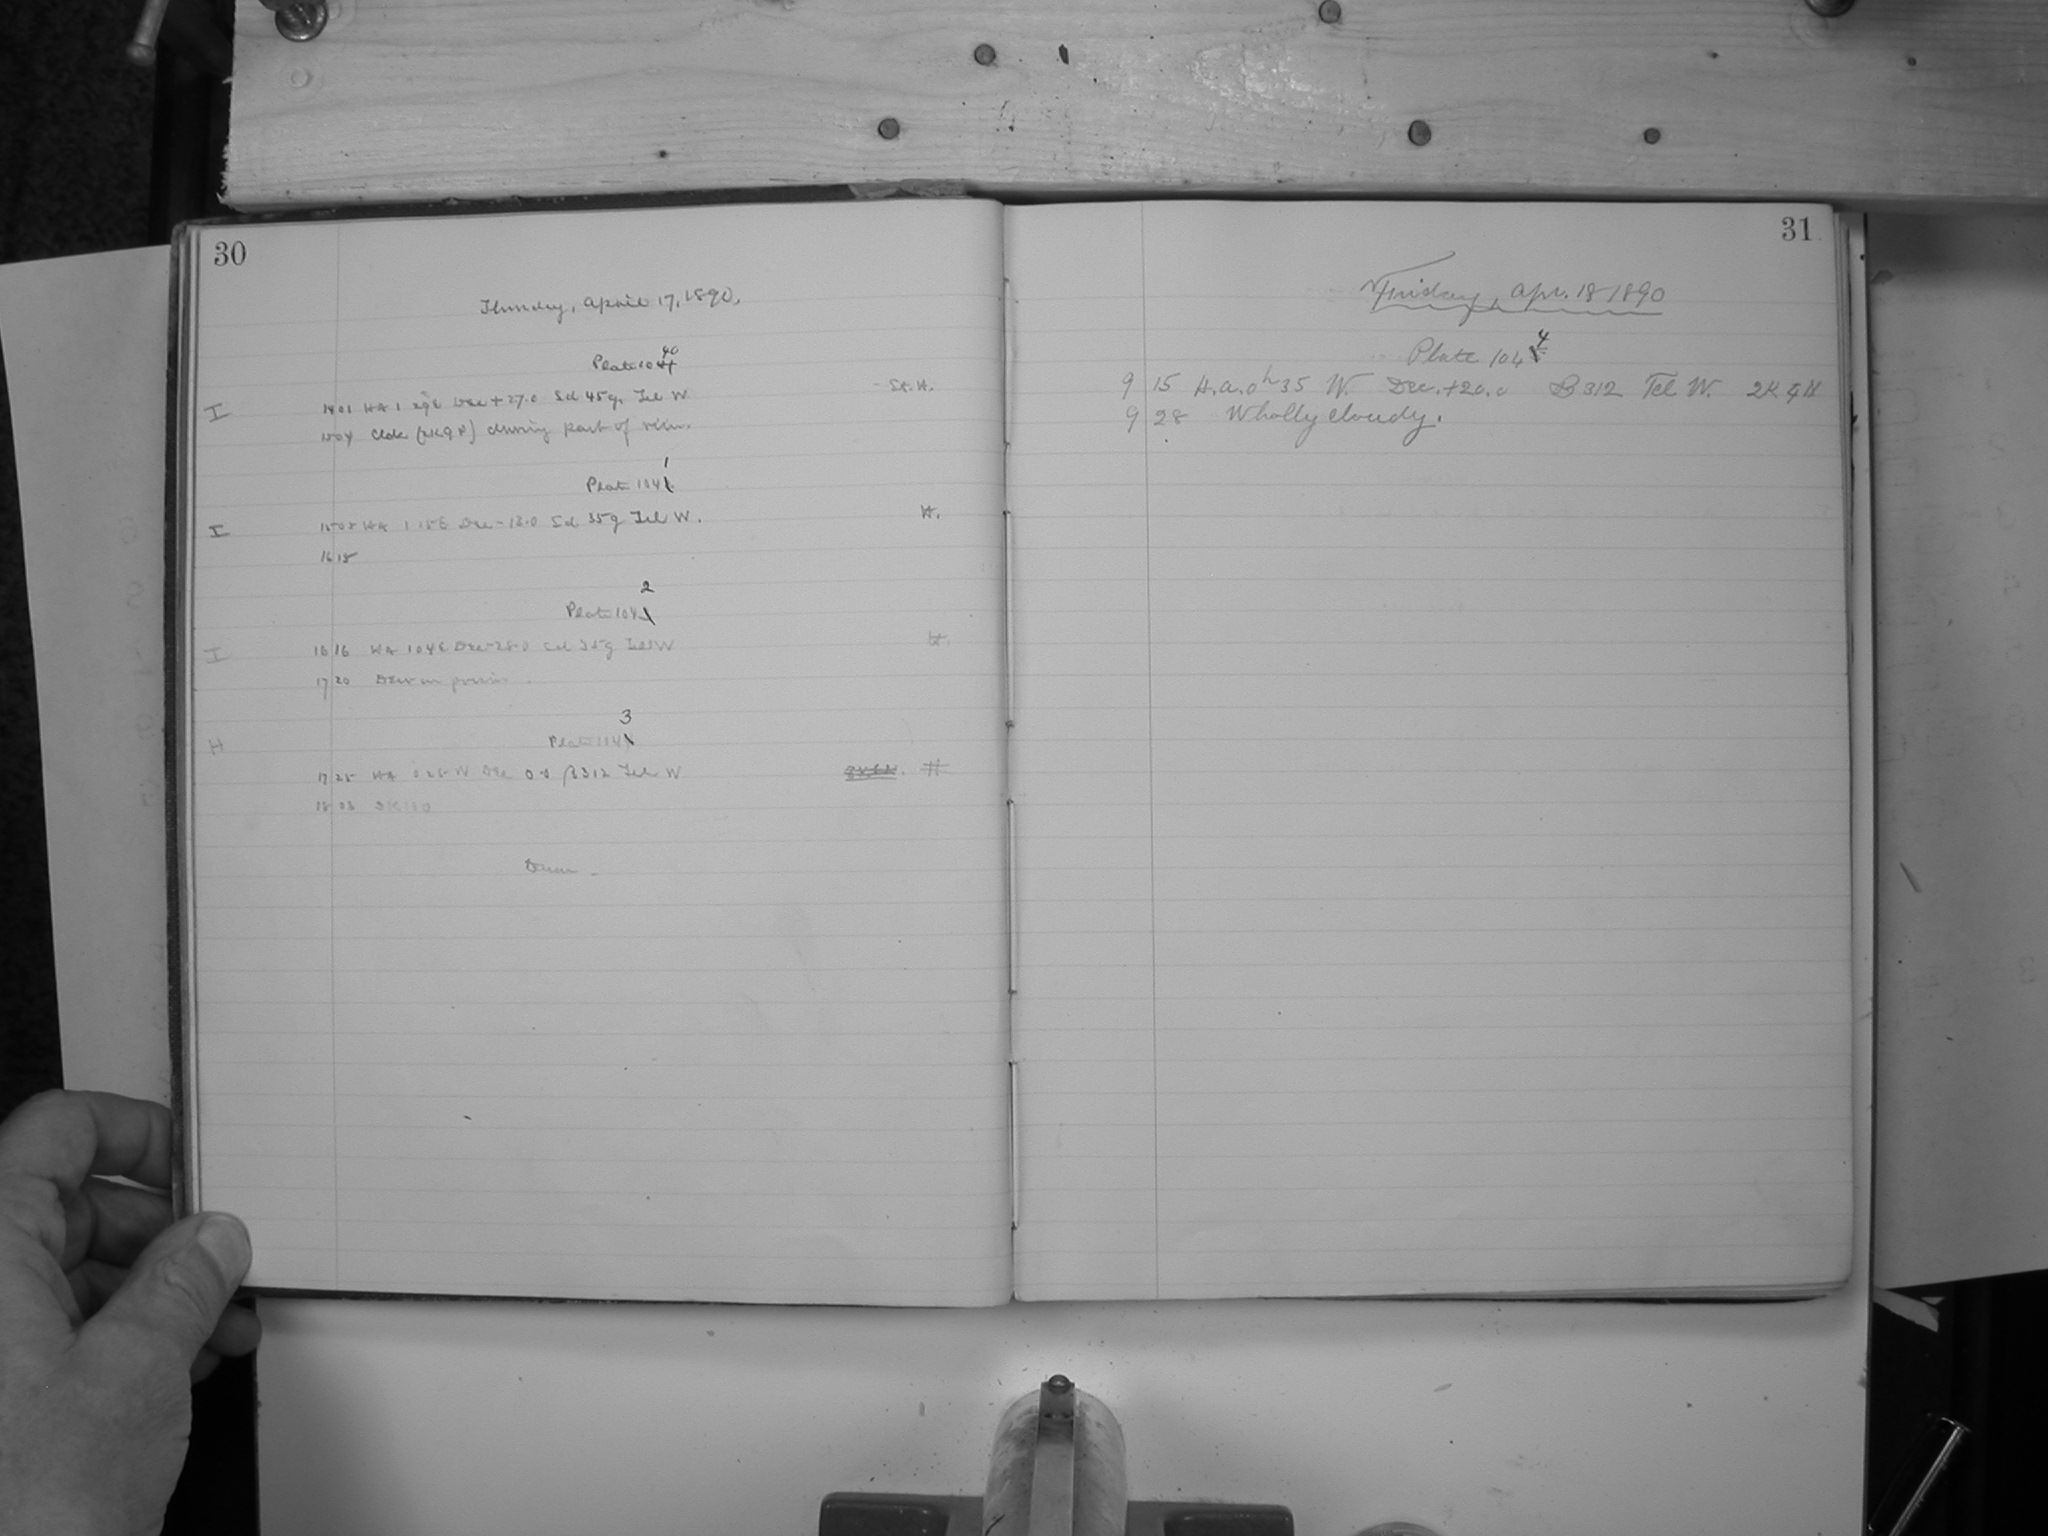 30
Thursday, April 17, 1890.
40
Plate 104
I 14 01 HA 1 29 E Dec + 27.0 Sd 45g. Tel W. St. H.
15 04 Clds (2K9P) during part of
1
Plate 104
I 15 05 HA 1 15 E Dec - 13.0 Sd 35g Tel W. H.
16 15
2
Plate 104
I 16 16 HA 1 04 E Dec - 25.0 Sd 35g Tel W H.
17 20 Dew on
3
Plate 104
H
17 25 HA 0 25 W Dec 0.0 β 312 Tel W H
18 03
31
Friday, Apr. 18 1890
4
Plate 104
9 15 H.a. 0h 35 W. Dec. +20.0 B 312 Tel W. 2K9H
9 28 Wholly cloudy.